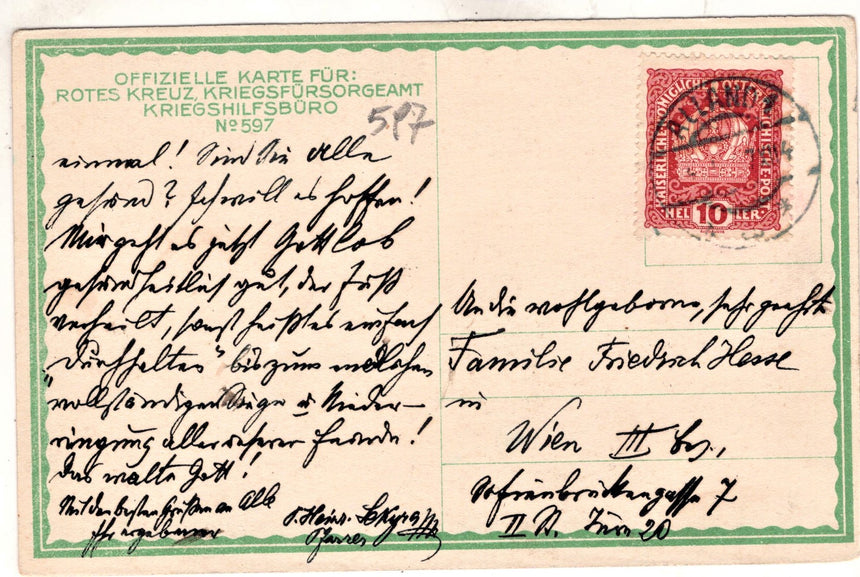 OFFIZIELLE KARTE FÜR:
ROTES KREUZ, KRIEGSFÜRSORGEAMT
KRIEGSHILFSBÜRO
No 597
597
einmal! Sind Sie Alle
gesund? Ich will es hoffen!
Mir geht es jetzt Gott lob
gesundheitlich gut, der Fuß
verheilt, sonst heißt es einfach
"Durchhalten" bis zum endlichen
vollständigen Siege u Nieder-
ringung aller unserer Feinde!
Das walte Gott!
Mit den besten Grüßen an Alle
Ihr ergebener
P. Heinr.
Pfarrer
KAISERLICHE KÖNIGLICHE ÖSTERREICHISCHE POST
HEL 10 LER
ALLAND
An die wohlgeborne, sehr geehrte
Familie Friedrich Hesse
in
Wien III Bez.,
Sofienbrückengasse 7
II St. Türe 20